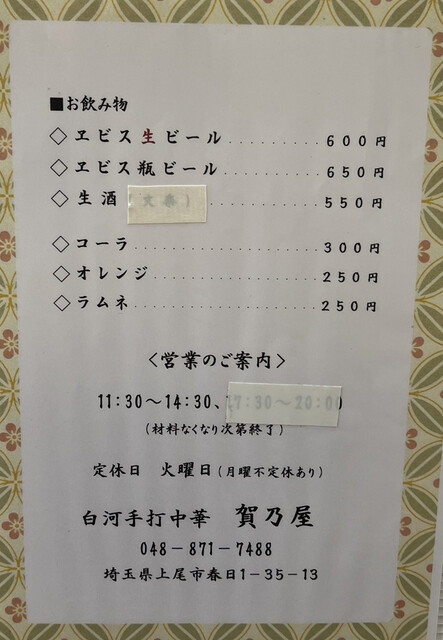 ■お飲み物
◇ヱビス生ビール..........600円
◇ヱビス瓶ビール..........650円
◇生酒..........550円
◇コーラ..........300円
◇オレンジ..........250円
◇ラムネ..........250円
〈営業のご案内〉
11:30〜14:30、17:30〜20:00
(材料なくなり次第終了)
定休日 火曜日(月曜不定休あり)
白河手打中華 賀乃屋
048-871-7488
埼玉県上尾市春日1-35-13